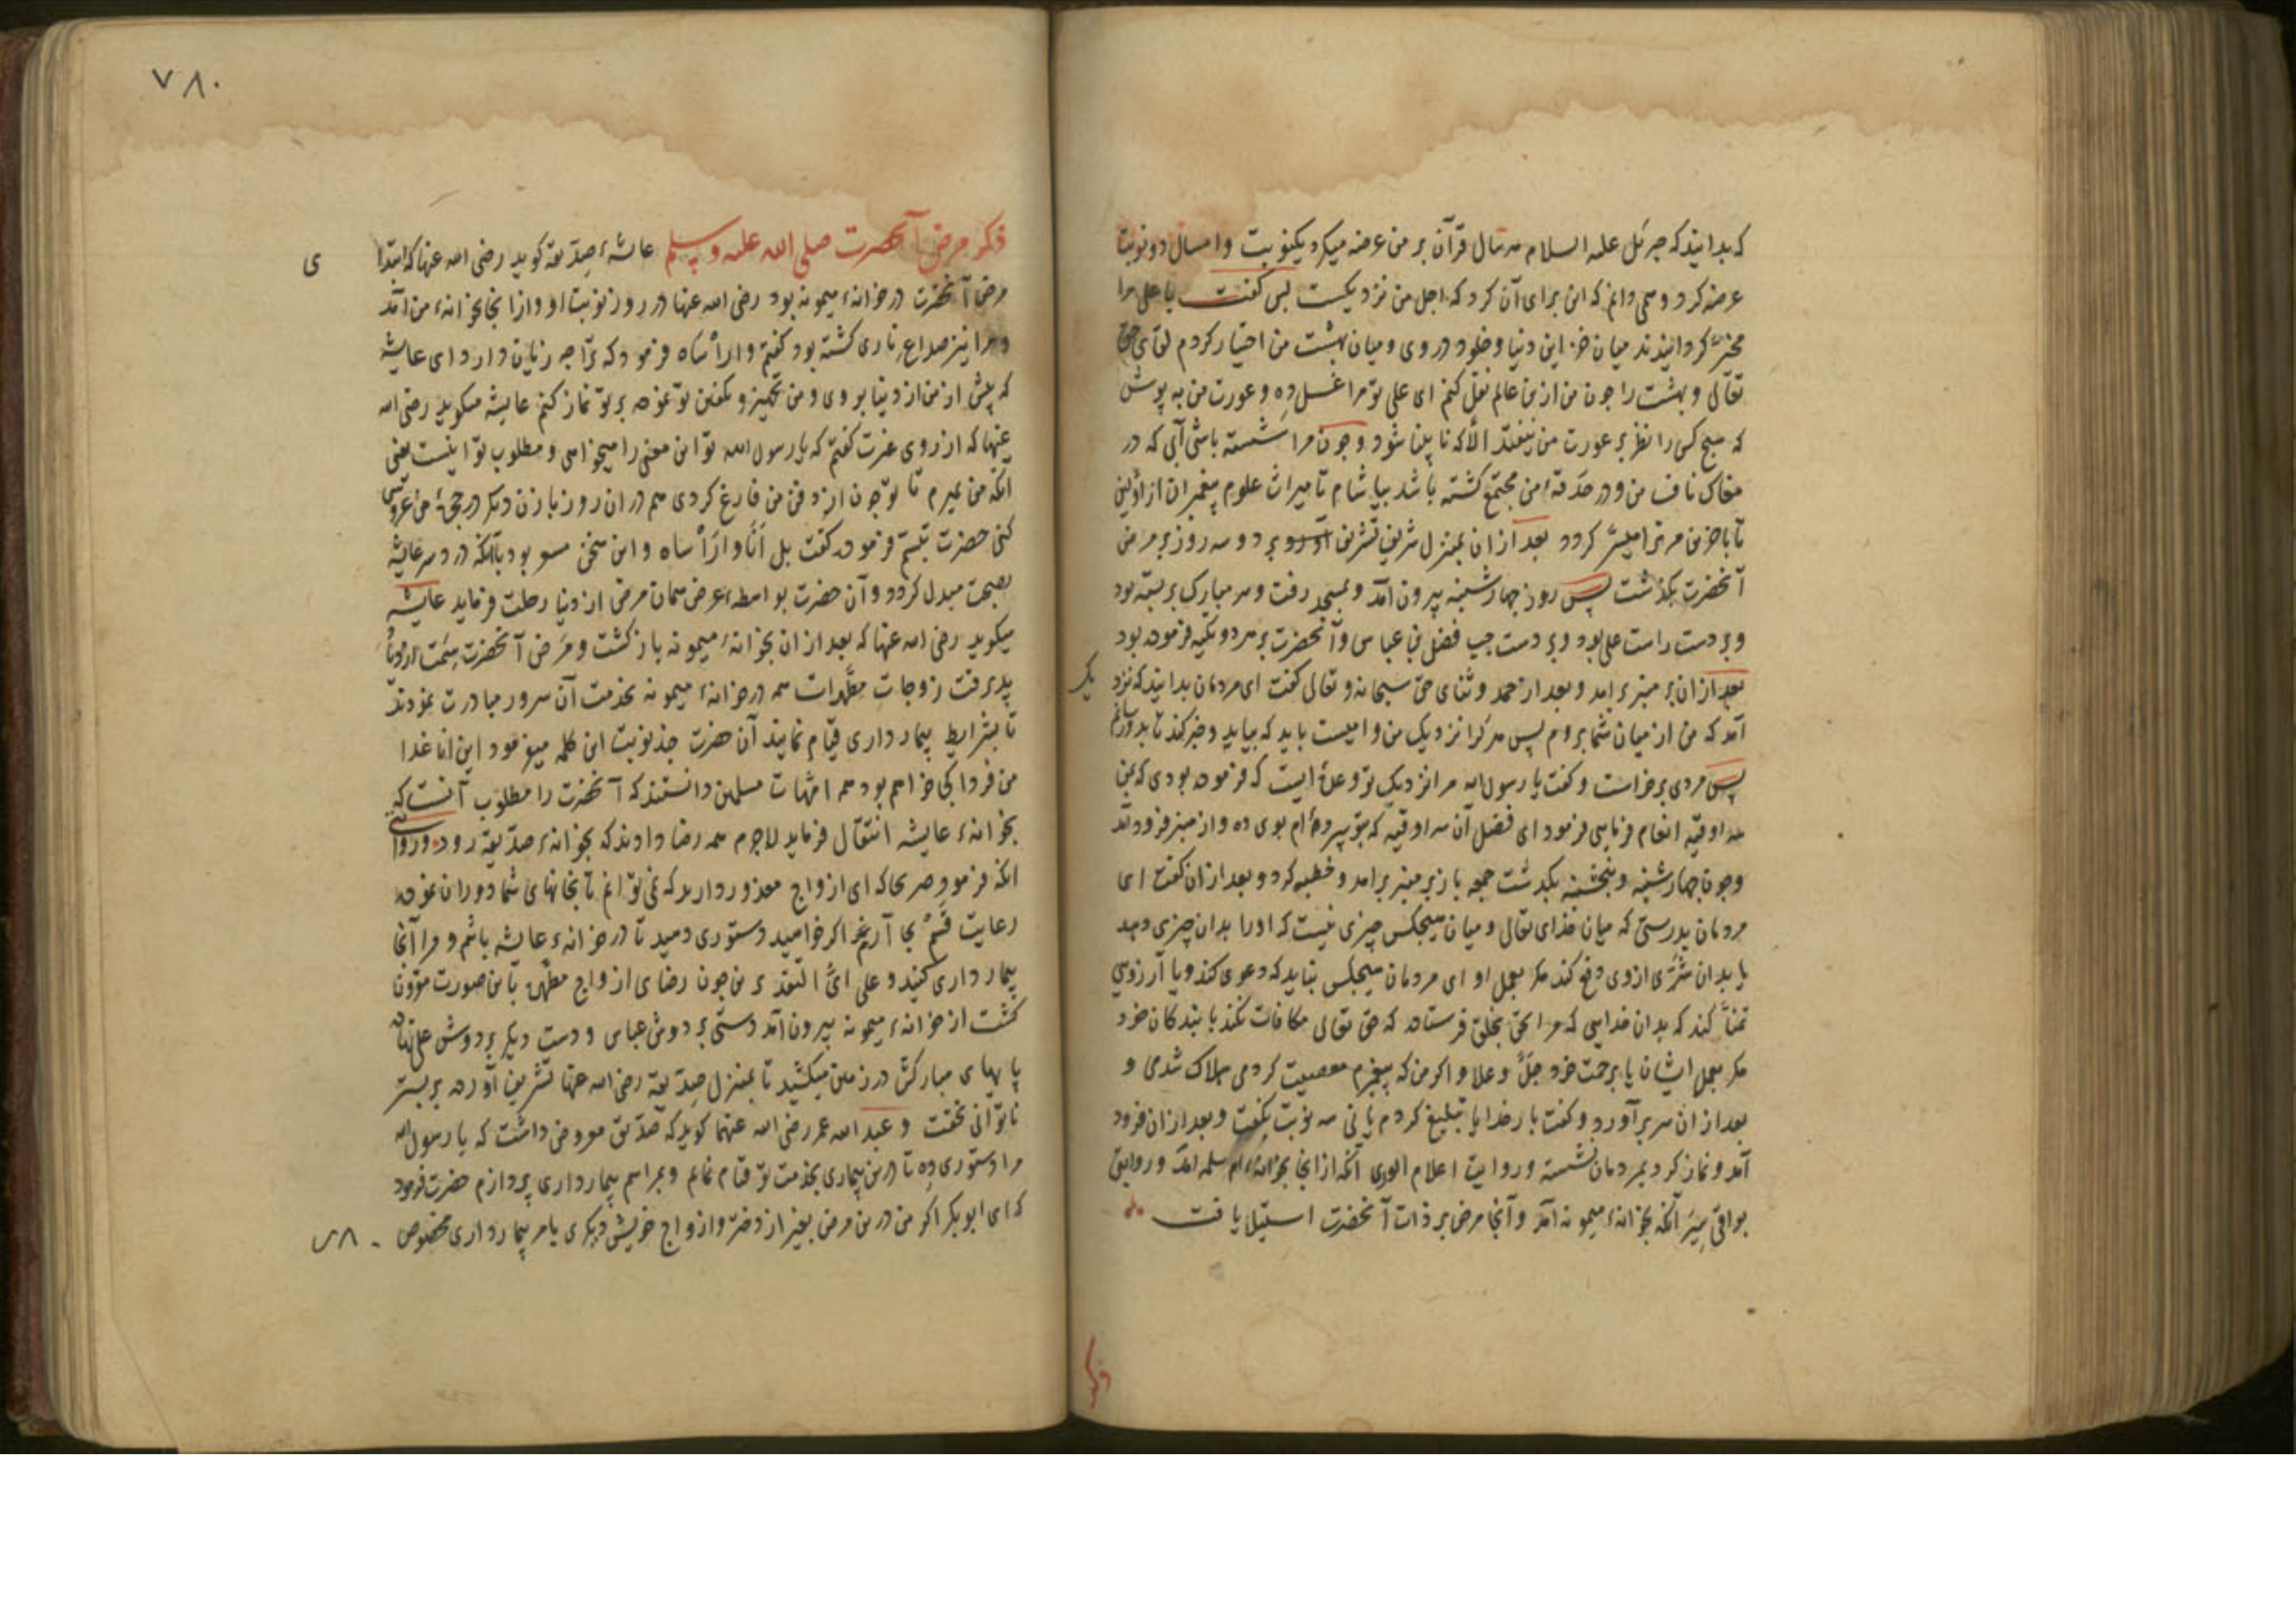 که بدانید که جبرئل علیه السلام هر سال قرآن بر من عرضه میکرد یکنوبت و امسال دو نوبت
عرضه کرد و نمی دانم که این برای آن کرد که اجل من نزدیکست پس گفت یا علی مرا
مخیّر گردانیدند میان خزاین دنیا و خلود در وی و میان بهشت من اختیار کردم لقای حق
تعالی و بهشت را چون من ازین عالم نقل کنم ای علی تو مرا غسل ده و عورت من به پوش
که هیچ کس را نظر بر عورت من نیفتد الّا که نابینا شود و چون مرا شسته باشی آبی که در
مغاک ناف من و در حدقه من مجتمع گشته باشد بیاشام تا میراث علوم پیغمبران از اوّلین
تا باخرین مر ترا میسّر گردد بعد ازان بمنزل شریف تشریف آورد و دو سه روز بر مرض
آنحضرت بگذشت پس روز چهارشنبه بیرون آمد و بمسجد رفت و سر مبارک بر بسته بود
و بر دست راست علی بود و بر دست چپ فضل بن عباس و آنحضرت بر هر دو تکیه فرموده بود
بعد ازان بر منبر برامد و بعد از حمد و ثنای حق سبحانه و تعالی گفت ای مردمان بدانید که نزدیک
آمد که من از میان شما بروم پس هر کرا نزدیک من وامیست باید که بیاید و خبر کند تا بدو رسانم
پس مردی برخاست و گفت یا رسول الله مرا نزدیک تو وعده ایست که فرموده بودی که بمن
سه اوقیه انعام فرمایی فرمود ای فضل آن سه اوقیه که بتو سپرده ام بوی ده و از منبر فرود آمد
و چون چهارشنبه و پنجشنبه بگذشت جمعه باز بر منبر برامد و خطبه کرد و بعد ازان گفت ای
مردمان بدرستی که میان خدای تعالی و میان هیچکس چیزی نیست که او را بدان چیزی دهد
یا بدان شرّی ازوی دفع کند مکر بعمل او ای مردمان هیچکس نباید که دعوی کند و یا آرزویی
تمنا کند که بدان خدایی که مرا بحق بخلق فرستاده که حق تعالی مکافات نکند با بندکان خود
مکر بعمل ایشان یا برحمت خود جلّ و علا و اکر من که پیغمبرم معصیت کردمی هلاک شدمی و
بعد ازان سر برآورد و گفت بار خدایا تبلیغ کردم یا نی سه نوبت بگفت و بعد ازان فرود
آمد و نماز کرد بمردمان نشسته و روایت اعلام الوری آنکه ازانجا بخانهٔ ام سلمه آمد و روایتی
بواقی سیر آنکه بخانهٔ میمونه آمد و آنجا مرض بر ذات آنحضرت استیلا یافت
ذکر
۷۸۰
ذکر مرض آنحضرت صلی الله علیه وسلم عایشهٔ صدّیقه گوید رضی الله عنها که ابتدای
مرض آنحضرت در خانهٔ میمونه بود رضی الله عنها در روز نوبت او و ازانجا بخانهٔ من آمد
و مرا نیز صداع طاری گشته بود گفتم وارأساه فرمود که ترا چه زیان دارد ای عایشه
که پیش از من از دنیا بروی و من تجهیز و تکفین تو نموده بر تو نماز کنم عایشه میگوید رضی الله
عنها که از روی غیرت گفتم که یا رسول الله تو این معنی را میخواهی و مطلوب تو اینست یعنی
آنکه من بمیرم تا تو چون از دفن من فارغ کردی هم دران روز با زن دیگر در حجرهٔ من عروسی
کنی حضرت تبسّم فرموده گفت بل أنا وارأساه و این سخن بود بآنکه درد سر عایشه
بصحت مبدل گردد و آن حضرت بواسطهٔ عرض همان مرض از دنیا رحلت فرماید عایشه
میگوید رضی الله عنها که بعد ازان بخانهٔ میمونه باز گشت و مرض آنحضرت سمت ازدیاد
پذیرفت زوجات مطهرات همه در خانهٔ میمونه بخدمت آن سرور مبادرت نمودند
تا بشرایط بیمارداری قیام نمایند آن حضرت چند نوبت این کلمه میفرمود این انا غدا
من فردا کجا خواهم بود همه امهات مسلمین دانستند که آنحضرت را مطلوب آنست که
بخانهٔ عایشه انتقال فرماید لاجرم همه رضا دادند که بخانهٔ صدّیقه رود و روایتی
آنکه فرمود صریحا که ای ازواج معذور دارید که نمی توانم تا بخانهای شما دوران نموده
رعایت قسم بجا آرم اکر خواهید دستوری دهید تا در خانهٔ عایشه باشم و مرا آنجا
بیمارداری کنید و علی ایّ التقدیرین چون رضای ازواج مطهره باین صورت مقرون
گشت از خانهٔ میمونه بیرون آمد دستی بر دوش عباس و دست دیگر بر دوش علی نهاده
پایهای مبارکش در زمین میکشید تا بمنزل صدّیقه رضی الله عنها تشریف آورده بر بستر
ناتوانی بخفت و عبد الله عمر رضی الله عنهما گوید که صدّیق معروض داشت که یا رسول الله
مرا دستوری ده تا درین بیماری بخدمت تو قیام نمایم و بمراسم بیمارداری پردازم حضرت فرمود
که ای ابوبکر اکر من درین مرض بغیر از دختر و ازواج خویش دیگری بامر بیمارداری مخصوص
۷۸۰